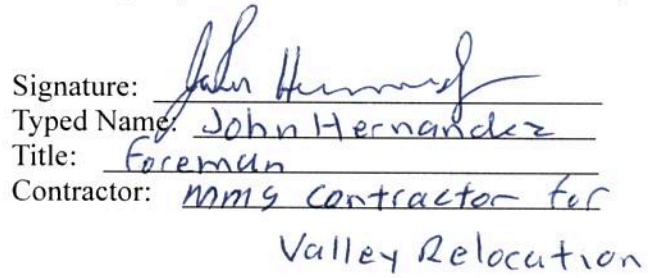 Signature: John Hernandez
Typed Name: John Hernandez
Title: Foreman
Contractor: MMS contractor for
Valley Relocation